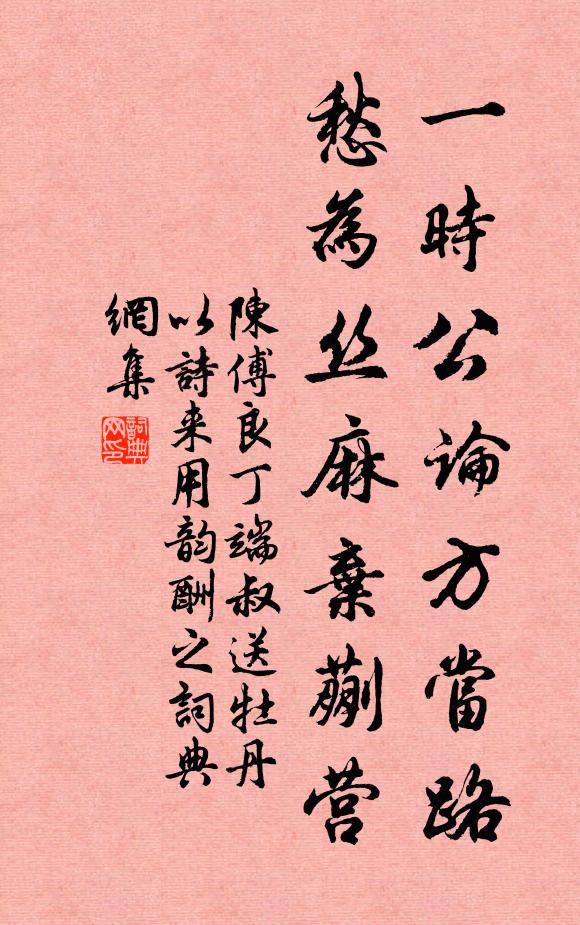 一時公論方當路
愁為丝麻棄蒯营
陳傅良丁端叔送牡丹
以詩来用韵酬之詞典
網集
詞典网印